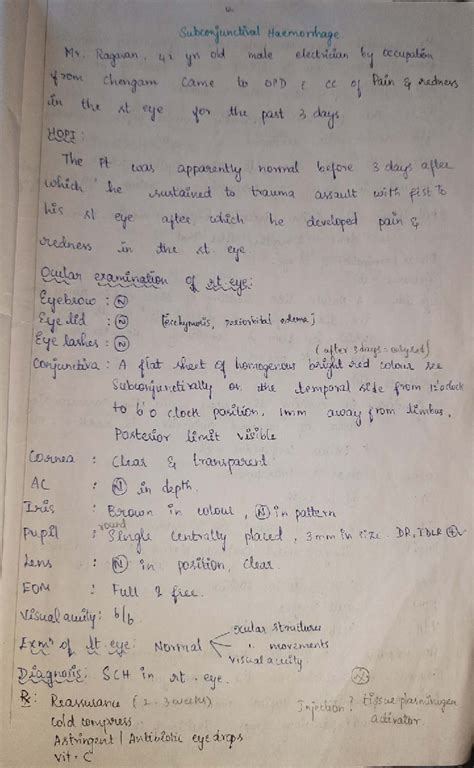 Subconjunctival Haemorrhage
Mr. Ragavan, 42 yrs old male electrician by occupation
from Chengam came to OPD c̄ cc of Pain & redness
in the rt eye for the past 3 days
HOPI:
The Pt was apparently normal before 3 days after
which he sustained to trauma assault with fist to
his rt eye after which he developed pain &
redness in the rt eye.
Ocular examination of rt eye:
Eyebrow : Ⓝ
Eye lid : Ⓝ [ecchymosis, periorbital edema]
Eye lashes : Ⓝ
(after 3 days = only red)
Conjunctiva : A flat sheet of homogenous bright red colour see
Subconjunctivally on the temporal side from 12'oclock
to 6'o clock position, 1mm away from limbus,
Posterior limit visible
Cornea : Clear & transparent
AC : Ⓝ in depth.
Iris : Brown in colour, Ⓝ in pattern
Pupil : round Single centrally placed, 3mm in size. DR, IDLR ⊕
Lens : Ⓝ in position, clear.
EOM : Full & free.
Visual acuity: 6/6
Exmⁿ of lt eye: Normal ocular structures
" movements
visual acuity
Diagnosis: SCH in rt. eye.
Rx: Reassurance (2-3 weeks)
cold compress
Astringent / Antibiotic eye drops
vit. C
Injection? tissue plasminogen
activator